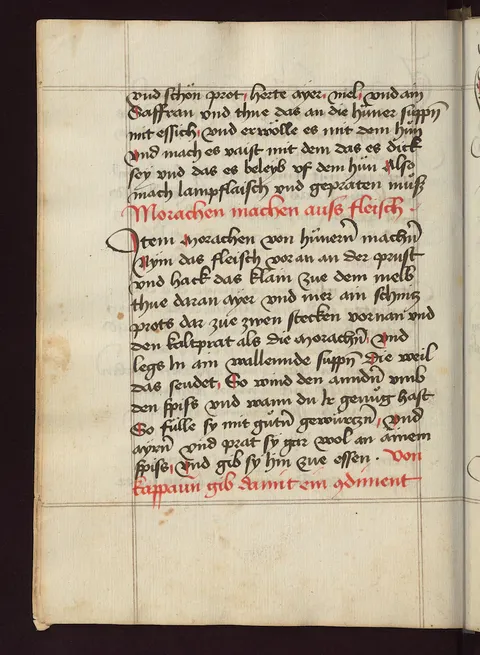 vnd schön prot, herte ayer, mel, vnd ain
Saffran vnd thue das an die hüner suppn̄
mit essich, vnd erwölle es mit dem hün
vnd mach es vaist mit dem das es dick
sey vnd das es beleyb vf dem hün Also
mach lampflaisch vnd gepraten
Morachen machen auss fleisch .
Item Morachen von hünern̄ machn̄
Nÿm das fleisch vor an an der prust
vnd hack das klain zue dem
thue daran ayer vnd mer ain schnitz
prots dar zue zwen stecken vornan vnd
den als die morachn̄, vnd
legs in am wallennde suppn̄ Die weil
das seudet, So wind den anndn̄ vmb
den spiss vnd wann du Ir genüg hast
So fülle sy mit gütn̄ gewürczn̄, vnd
ayrn̄ vnd prat sy gar wol an ainem
spiss, vnd gib sy hin zue essen . Von
kappaun gib damit ein 9diment